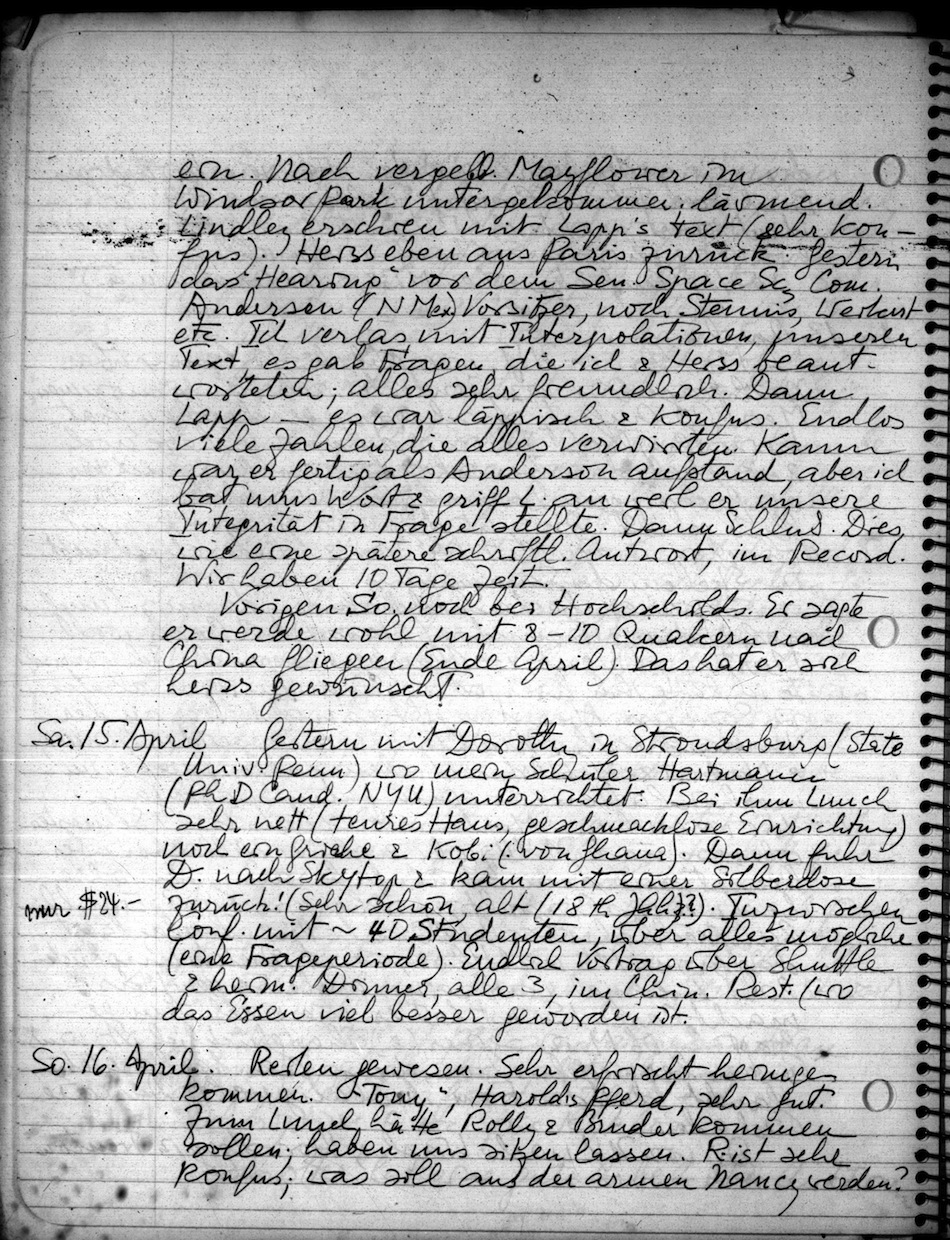 ein. Nach vergebl. Mayflower im
Windsor Park untergekommen. Lärmend.
Lindley erschien mit Lapp's Text (sehr kon-
fus). Heiss eben aus Paris zurück. Gestern
das "Hearing" vor dem Sen. Space Sc. Com.
Anderson (N Mex) Vorsitzer, noch Stennis,
etc. Ich verlas, mit Interpolationen, unseren
Text, es gab Fragen, die ich & Heiss beant-
worteten; alles sehr freundlich. Dann
Lapp — es war läppisch & konfus. Endlos
viele Zahlen, die alles verwirrten. Kaum
war er fertig als Anderson aufstand, aber ich
bat ums Wort & griff L. an weil er unsere
Integrität in Frage stellte. Dann Schluß. Dies,
wie eine spätere schriftl. Antwort, im Record.
Wir haben 10 Tage Zeit.
Vorigen So. noch bei Hochschilds. Er sagte
er werde wohl mit 8-10 Quakern nach
China fliegen (Ende April). Das hat er sich
heiss gewünscht.
Sa. 15. April Gestern mit Dorothy in Stroudsburg (State
Univ. Penn) wo mein Schüler Hartmann
(Ph D Cand. NYU) unterrichtet. Bei ihm Lunch
sehr nett (teures Haus, geschmacklose Einrichtung)
noch ein Grieche & Kobi (von Ghana). Dann fuhr
D. nach Skytop & kam mit einer Silberdose
nur $24.- zurück! (Sehr schön, alt (18th Jah??). Inzwischen
Conf. mit ~ 40 Studenten, über alles mögliche
(eine Frageperiode). Endlich Vortrag über Shuttle
& heim. Dinner, alle 3, im Chin. Rest. (wo
das Essen viel besser geworden ist.
So. 16. April. Reiten gewesen. Sehr erfrischt heimge-
kommen. "Tony", Harolds Pferd, sehr gut.
Zum Lunch hätte Rolly & Bruder kommen
sollen; haben uns sitzen lassen. R. ist sehr
konfus; was soll aus der armen Nancy werden?